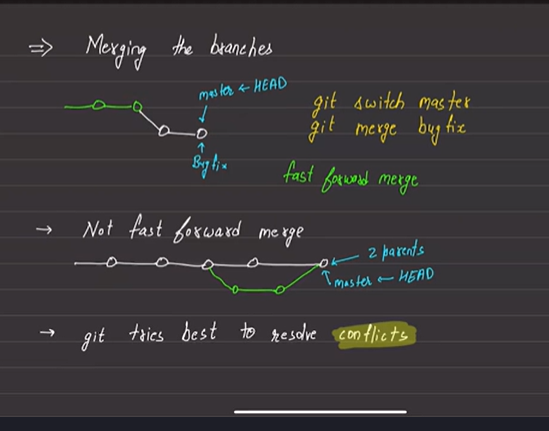 ⇒ Merging the branches
master ← HEAD
Bugfix
git switch master
git merge bugfix
fast forward merge
→ Not fast forward merge
2 parents
master ← HEAD
→ git tries best to resolve conflicts